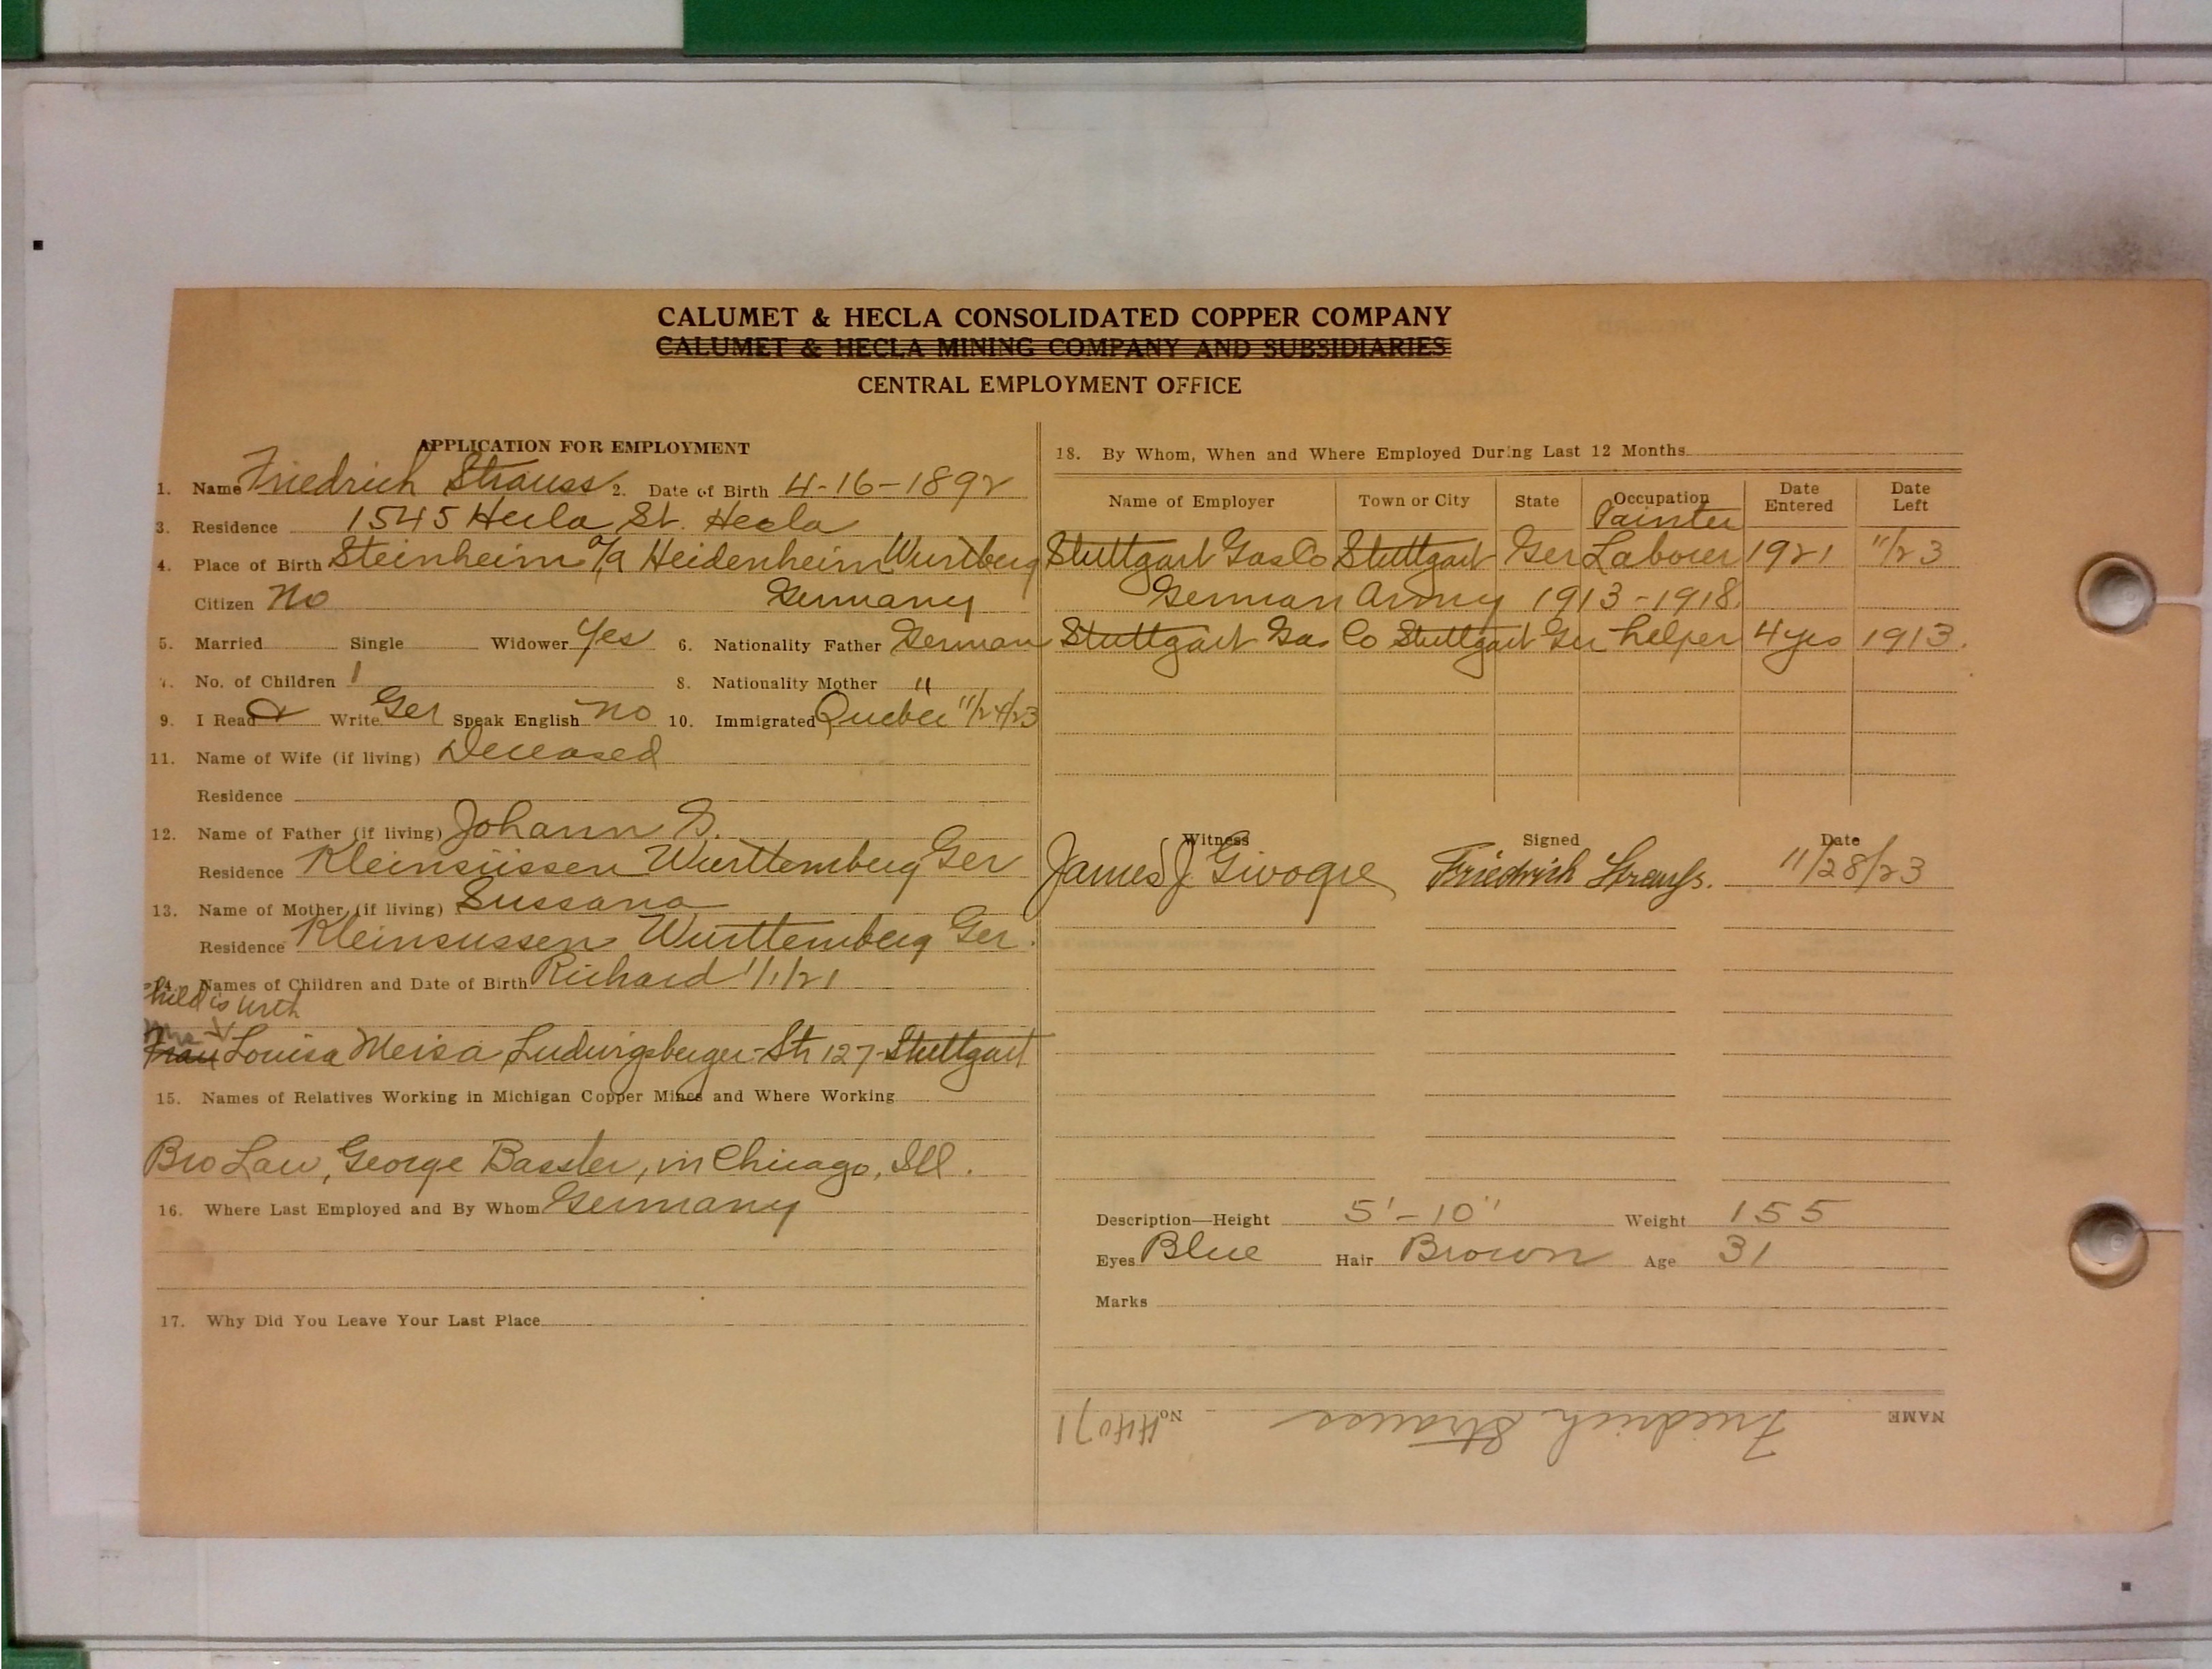 CALUMET & HECLA CONSOLIDATED COPPER COMPANY
CALUMET & HECLA MINING COMPANY AND SUBSIDIARIES
CENTRAL EMPLOYMENT OFFICE
APPLICATION FOR EMPLOYMENT
1. Name Friedrich Strauss 2. Date of Birth 4-16-1892
3. Residence 1545 Hecla St. Hecla
4. Place of Birth Steinheim a/a Heidenheim Wurtberg
Citizen No Germany
5. Married Single Widower Yes 6. Nationality Father German
7. No. of Children 1 8. Nationality Mother "
9. I Read & Write Ger Speak English No 10. Immigrated Quebec 11/24/23
11. Name of Wife (if living) Deceased
Residence
12. Name of Father (if living) Johann S.
Residence Kleinsüssen Wurttemberg Ger
13. Name of Mother (if living) Sussana
Residence Kleinsussen Wurttemberg Ger.
14. Names of Children and Date of Birth Richard 1/1/21
Child is with
Mrs
Frau Louisa Meisa Ludwigsberger-Str 127-Stuttgart
15. Names of Relatives Working in Michigan Copper Mines and Where Working
Bro Law, George Bassler, in Chicago, Ill.
16. Where Last Employed and By Whom Germany
17. Why Did You Leave Your Last Place
18. By Whom, When and Where Employed During Last 12 Months
Name of Employer Town or City State Occupation Date Entered Date Left
Painter
Stuttgart Gas Co Stuttgart Ger Laborer 1921 11/23
German Army 1913-1918.
Stuttgart Gas Co Stuttgart Ger helper 4 yrs 1913.
Witness Signed Date
James J. Friedrich Strauss. 11/28/23
Description—Height 5'-10" Weight 155
Eyes Blue Hair Brown Age 31
Marks
NAME Friedrich Strauss No. 44071